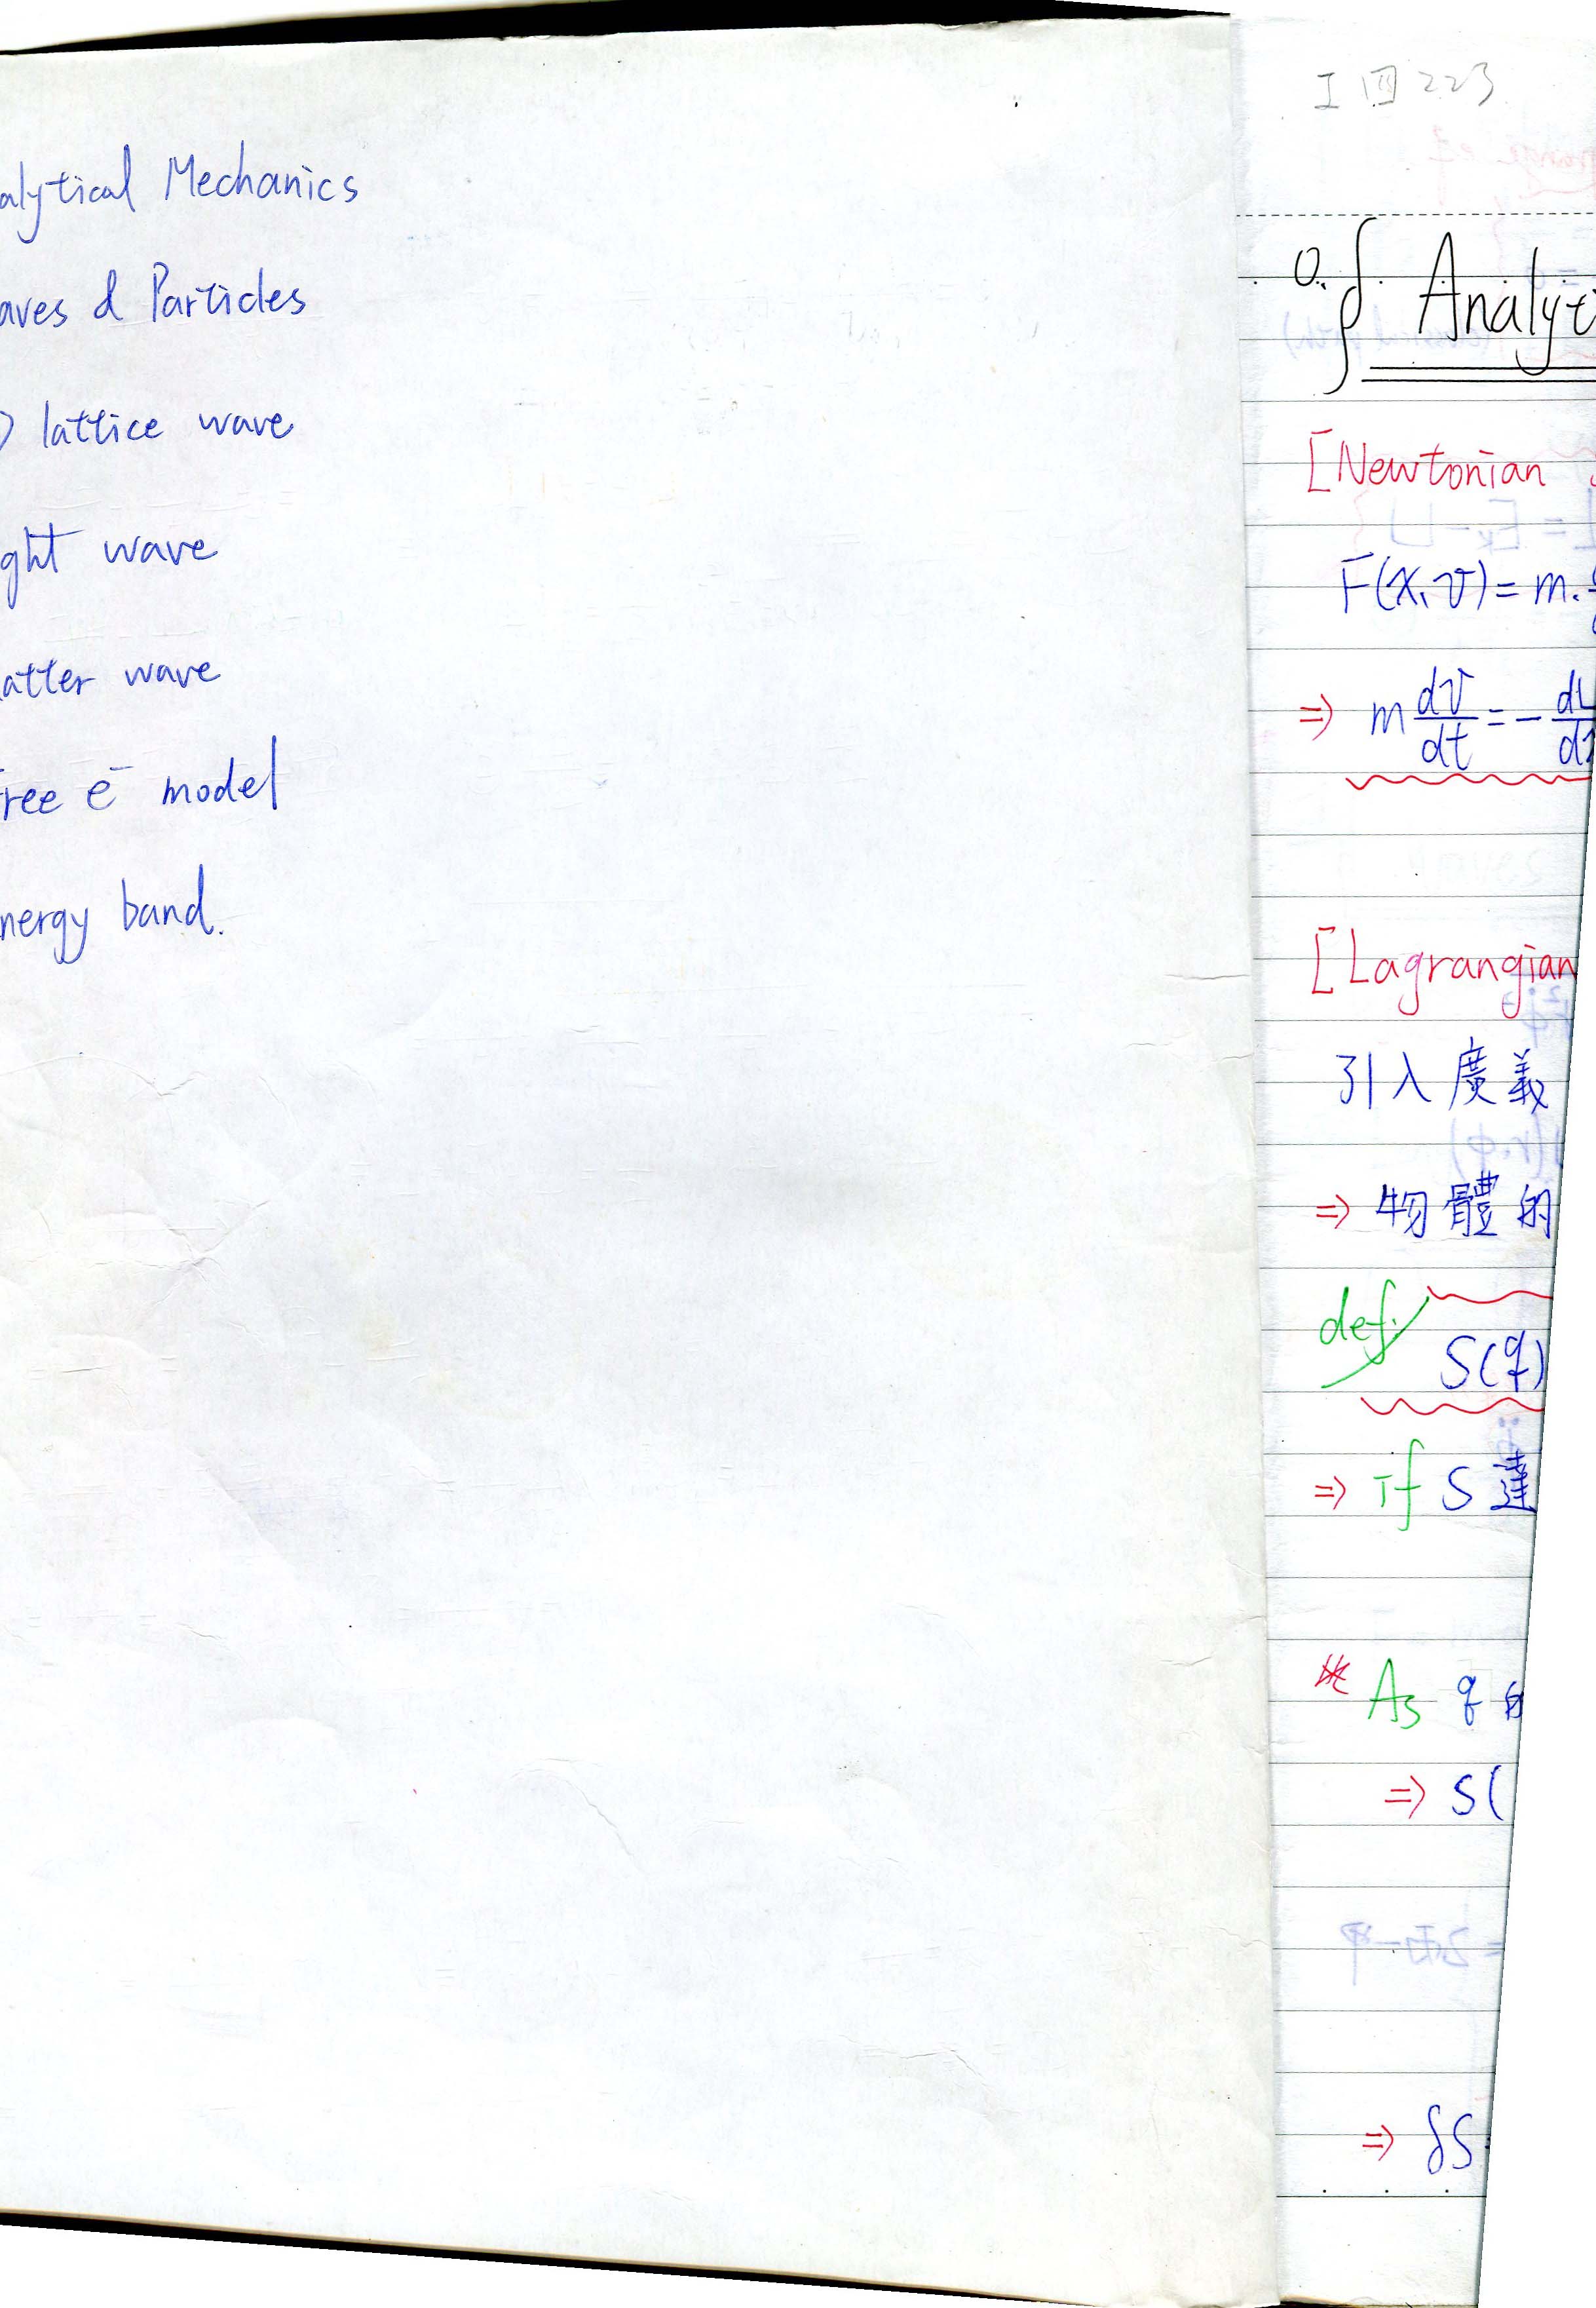 alytical Mechanics
aves & Particles
) lattice wave
ght wave
atter wave
ree e⁻ model
nergy band.
I 四 223
0. § Analyt
[Newtonian
F(x, v) = m.
⇒ m dv/dt = -
[Lagrangian
引入廣義
⇒ 物體的
def. S(q)
⇒ if S 達
※ As q 的
⇒ S(
⇒ δS